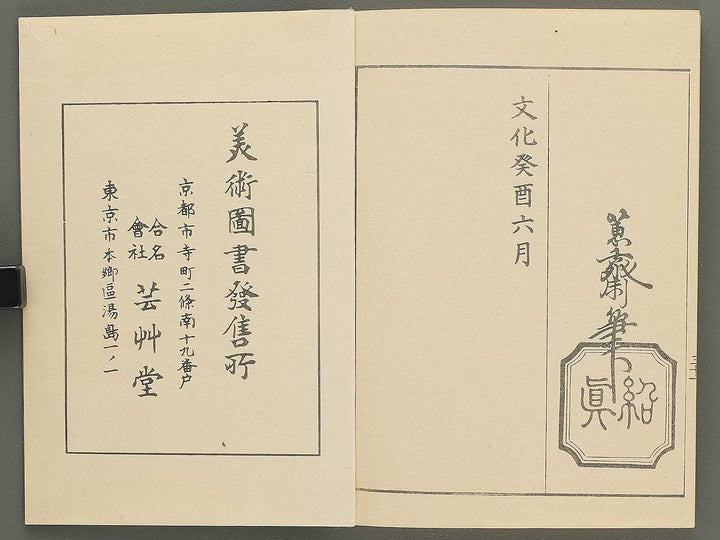 蕙齋筆
紹眞
文化癸酉六月
美術圖書發售所
京都市寺町二條南十九番戸
合名會社 芸艸堂
東京市本郷區湯島一ノ一